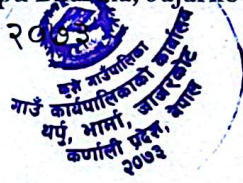 २०७३
कुसे गाउँपालिका
गाउँ कार्यपालिकाको कार्यालय
थर्पु, भार्मा, जाजरकोट
कर्णाली प्रदेश, नेपाल
२०७३